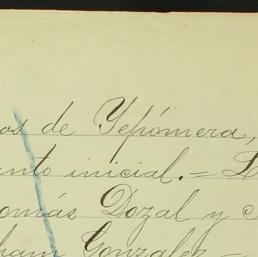 os de Yepómera,
ento inicial. =
omás Dozal y
ham Gonzalez =